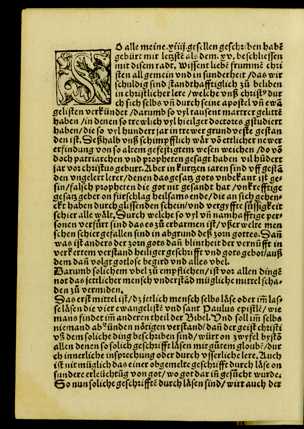 O alle meine xiiij gesellen geschriben habē
gebürt mir letzste als dem .xv. beschliessen
mit disem radt, Wissent liebē frumme chri
sten all gemein vnd in sunderheit / das wir
schuldig sind standthafftiglich zů beliben
in christlicher lere / welche vnß christus dur
ch sich selbs vn durch seine apostel vn ewā
gelisten verkündet / darumb so vyl tausent marterer gelittē
haben / in deren so trewlich vyl heiliger doctores gstudiert
haben / die so vyl hundert jar in trewer grund veste gestan
den ist. Seßhalb vnß schimpfflich wār võ ertlicher newer
erfindung von so altem gefestigtem wesen weichen / do vō
doch patriarchen vnd propheten gesagt haben vil hūdert
jar vor christus geburt. Aber in kurtzen iaren sind vff gestā
den vngelert lerer / denen das gesatz gots vnbekant ist ge
sin / falsch propheten die got nit gesandt har / vnkrefftige
gesatz gebot on fürschlag heilsams ende / die an sich gehen
ckt haben durch glissenden schein / vnd vergyffte süssigkeit
schier alle wält, Durch welche so vyl vn namhafftige per
sonen verfürt sind das es zů erbarmen ist / vß der wele men
schen schier gefallen sind in abgrund deß zorn gottes. Dañ
was ist anders der zorn gots dañ blintheit der vernüfft in
verkertem verstand heiliger geschrifft vnd gots gebot / auß
dem dañ volgt gotlose begird vnd alles vbel.
Darumb solichem vbel zů empfliehen / ist vor allen dinge
not das jettlicher mensch vnderstād mügliche mittel scha
den zů vermiden.
Das erst mittel ist / dz jetlich mensch selbs läse oder im̄ las
se läsen die vier ewangelistē vnd sant Paulus epistlē / wie
mans findet im anderen theil der Bibel. Vnd soll im selbs
niemand abzünden nötigen verstand / dañ der geist christi
vß dem soliche ding beschriben sind / würt on zwyfel bystō
allen denen so solich geschrifft läsen mit gůtem gloubē / dur
ch innerliche insprechung oder durch vsserliche lere. Auch
ist nit müglich das einer obgemelte geschrifft durch läse on
sundere erleüchtūg von got / wo got dar in gesůcht würde.
So nun soliche geschrifftē durch läsen sind / würt auch der